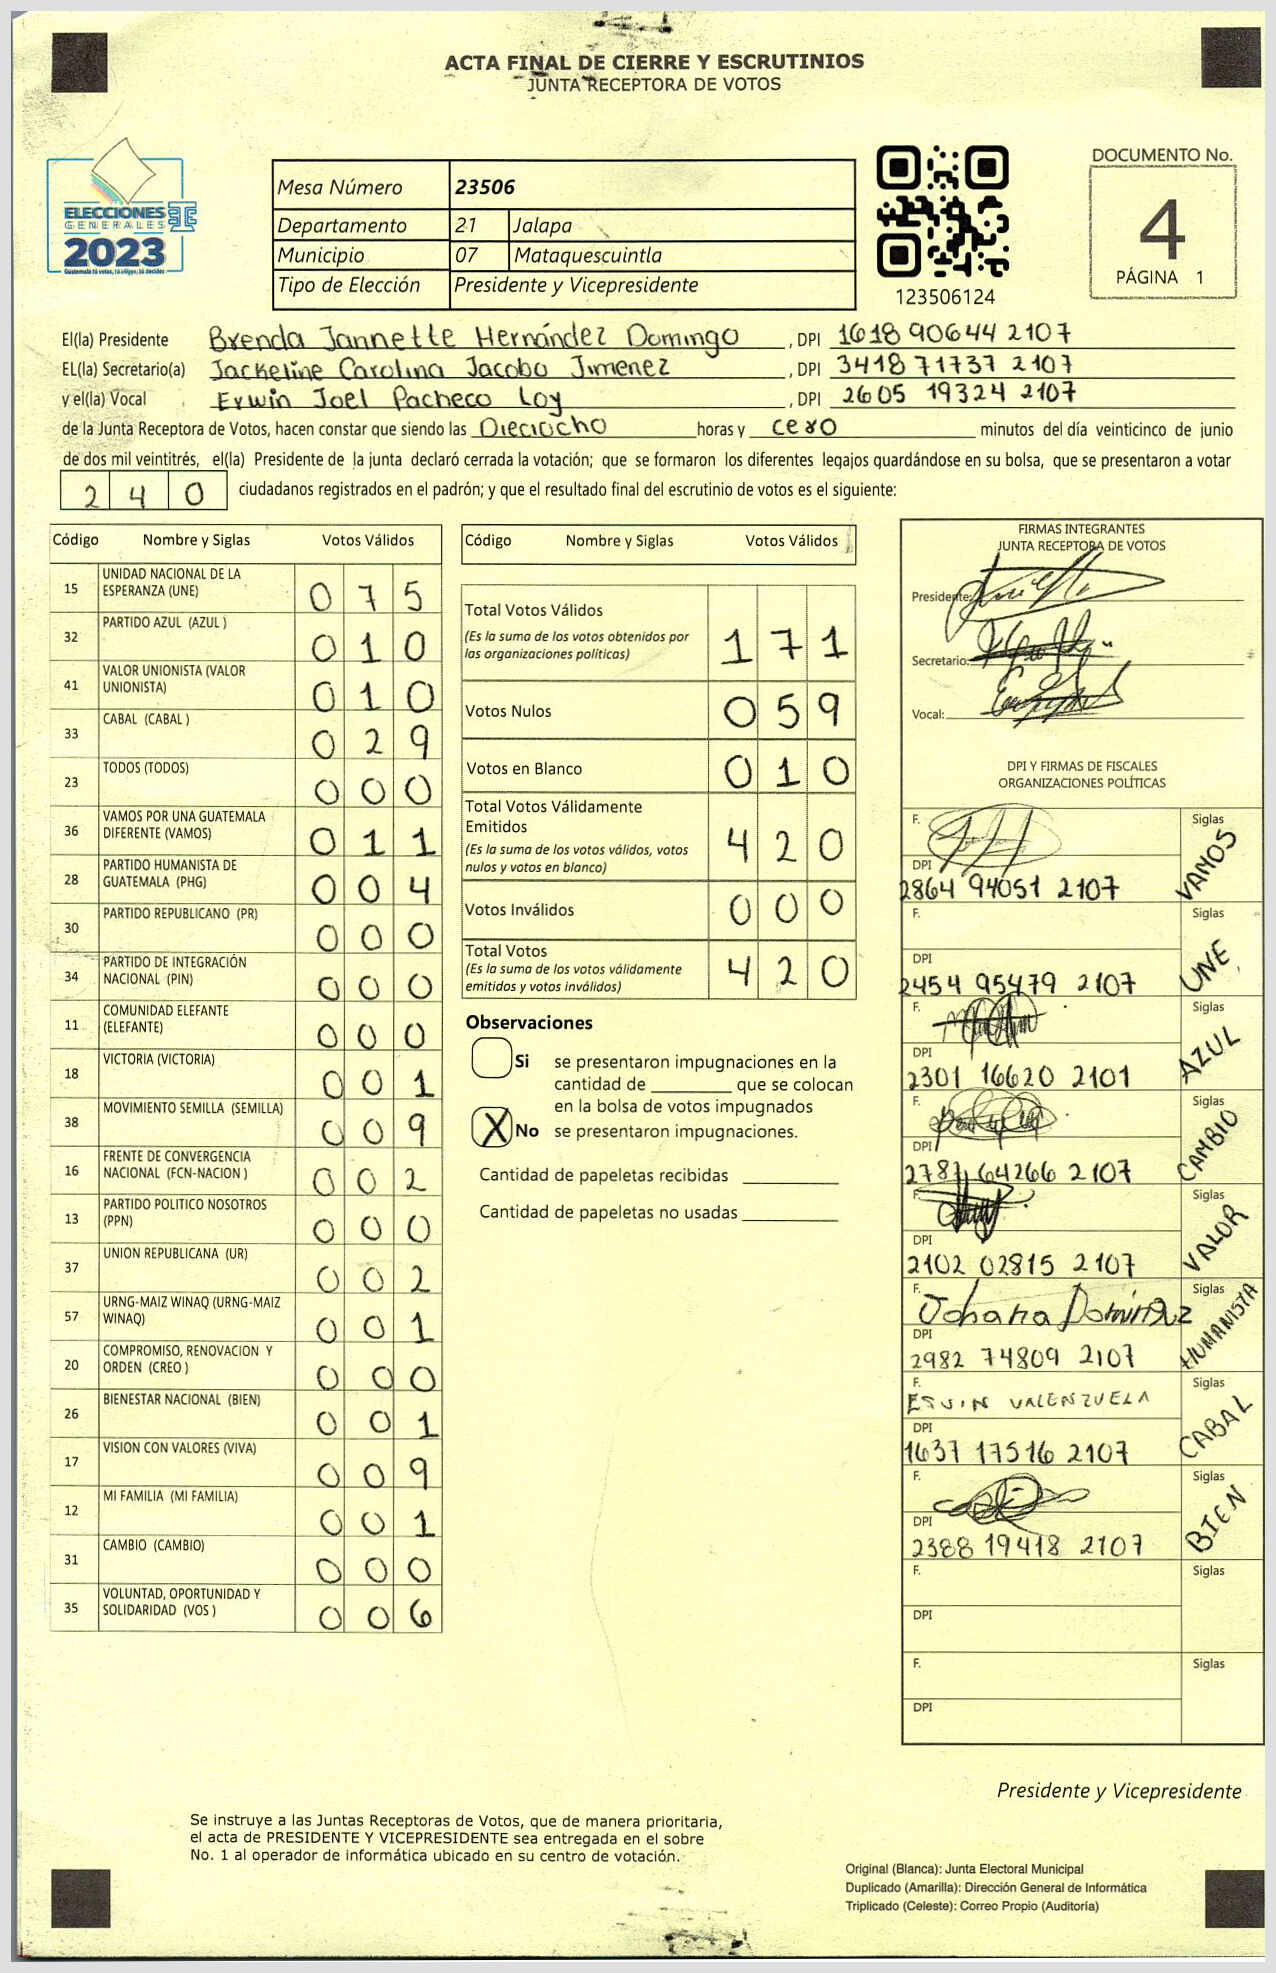 ACTA FINAL DE CIERRE Y ESCRUTINIOS
JUNTA RECEPTORA DE VOTOS
ELECCIONES
GENERALES
2023
Guatemala tú votas, tú eliges, tú decides
Mesa Número 23506
Departamento 21 Jalapa
Municipio 07 Mataquescuintla
Tipo de Elección Presidente y Vicepresidente
123506124
DOCUMENTO No.
4
PÁGINA 1
El(la) Presidente Brenda Jannette Hernández Domingo, DPI 1618 90644 2107
EL(la) Secretario(a) Jackeline Carolina Jacobo Jimenez, DPI 3418 71737 2107
y el(la) Vocal Erwin Joel Pacheco Loy, DPI 2605 19324 2107
de la Junta Receptora de Votos, hacen constar que siendo las Dieciocho horas y cero minutos del día veinticinco de junio
de dos mil veintitrés, el(la) Presidente de la junta declaró cerrada la votación; que se formaron los diferentes legajos guardándose en su bolsa, que se presentaron a votar
2 4 0 ciudadanos registrados en el padrón; y que el resultado final del escrutinio de votos es el siguiente:
Código Nombre y Siglas Votos Válidos
15 UNIDAD NACIONAL DE LA
ESPERANZA (UNE) 0 7 5
32 PARTIDO AZUL (AZUL ) 0 1 0
41 VALOR UNIONISTA (VALOR
UNIONISTA) 0 1 0
33 CABAL (CABAL ) 0 2 9
23 TODOS (TODOS) 0 0 0
36 VAMOS POR UNA GUATEMALA
DIFERENTE (VAMOS) 0 1 1
28 PARTIDO HUMANISTA DE
GUATEMALA (PHG) 0 0 4
30 PARTIDO REPUBLICANO (PR) 0 0 0
34 PARTIDO DE INTEGRACIÓN
NACIONAL (PIN) 0 0 0
11 COMUNIDAD ELEFANTE
(ELEFANTE) 0 0 0
18 VICTORIA (VICTORIA) 0 0 1
38 MOVIMIENTO SEMILLA (SEMILLA) 0 0 9
16 FRENTE DE CONVERGENCIA
NACIONAL (FCN-NACION ) 0 0 2
13 PARTIDO POLITICO NOSOTROS
(PPN) 0 0 0
37 UNION REPUBLICANA (UR) 0 0 2
57 URNG-MAIZ WINAQ (URNG-MAIZ
WINAQ) 0 0 1
20 COMPROMISO, RENOVACION Y
ORDEN (CREO ) 0 0 0
26 BIENESTAR NACIONAL (BIEN) 0 0 1
17 VISION CON VALORES (VIVA) 0 0 9
12 MI FAMILIA (MI FAMILIA) 0 0 1
31 CAMBIO (CAMBIO) 0 0 0
35 VOLUNTAD, OPORTUNIDAD Y
SOLIDARIDAD (VOS ) 0 0 6
Código Nombre y Siglas Votos Válidos
Total Votos Válidos
(Es la suma de los votos obtenidos por
las organizaciones políticas) 1 7 1
Votos Nulos 0 5 9
Votos en Blanco 0 1 0
Total Votos Válidamente
Emitidos
(Es la suma de los votos válidos, votos
nulos y votos en blanco) 4 2 0
Votos Inválidos 0 0 0
Total Votos
(Es la suma de los votos válidamente
emitidos y votos inválidos) 4 2 0
Observaciones
Si se presentaron impugnaciones en la
cantidad de ________ que se colocan
en la bolsa de votos impugnados
X No se presentaron impugnaciones.
Cantidad de papeletas recibidas
Cantidad de papeletas no usadas
FIRMAS INTEGRANTES
JUNTA RECEPTORA DE VOTOS
Presidente:
Secretario:
Vocal:
DPI Y FIRMAS DE FISCALES
ORGANIZACIONES POLÍTICAS
F. Siglas
DPI VAMOS
2864 94051 2107
F. Siglas
DPI UNE
2454 95479 2107
F. Siglas
DPI AZUL
2301 16620 2101
F. Siglas
DPI CAMBIO
2781 64266 2107
F. Siglas
DPI VALOR
2102 02815 2107
F. Johana Siglas
DPI HUMANISTA
2982 74809 2107
F. ESVIN VALENZUELA Siglas
DPI CABAL
1637 17516 2107
F. Siglas
DPI BIEN
2388 19418 2107
F. Siglas
DPI
F. Siglas
DPI
Presidente y Vicepresidente
Se instruye a las Juntas Receptoras de Votos, que de manera prioritaria,
el acta de PRESIDENTE Y VICEPRESIDENTE sea entregada en el sobre
No. 1 al operador de informática ubicado en su centro de votación.
Original (Blanca): Junta Electoral Municipal
Duplicado (Amarilla): Dirección General de Informática
Triplicado (Celeste): Correo Propio (Auditoría)